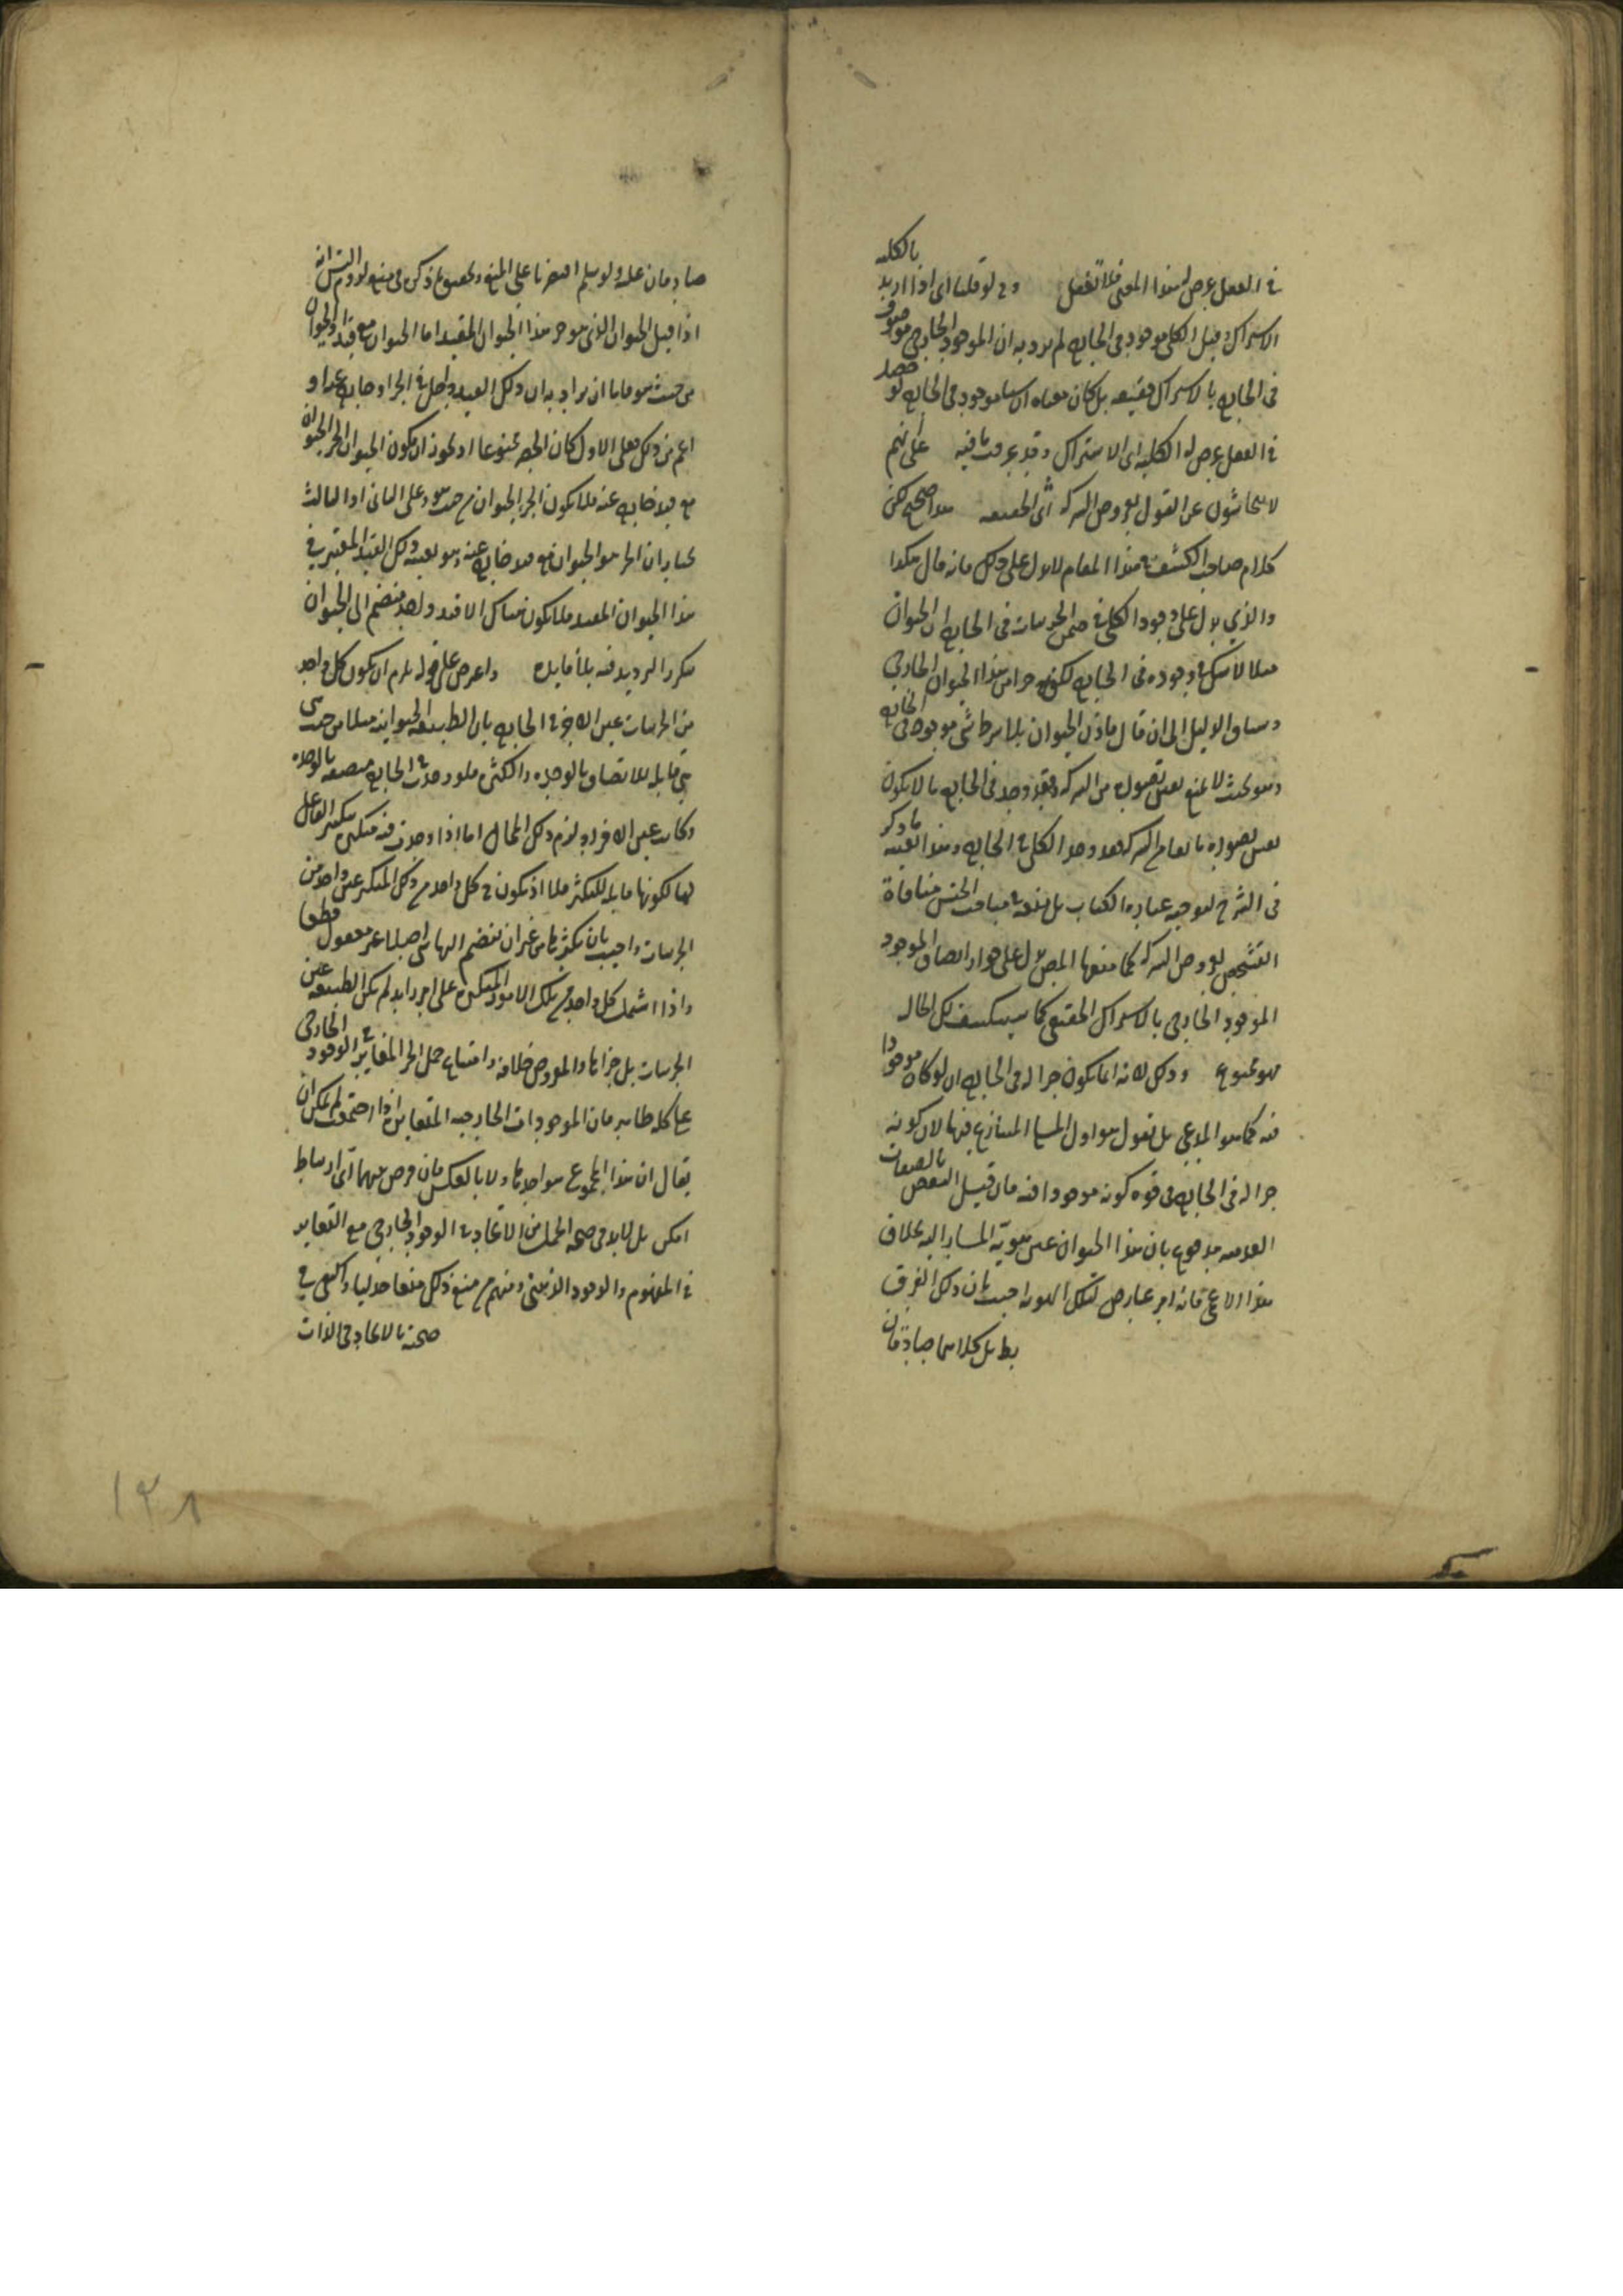 في العقل عرض له هذا المعنى فلا تغفل وح لو قلنا اى اذا اريد بالكليه
الاشتراك وقيل الكلى موجود في الخارج لم يرد به ان الموجود الخارجى موصوف
في الخارج بالاشتراك حقيقه بل كان معناه ان شيئا موجود في الخارج لو حصل
في العقل عرض له الكليه اى الاشتراك وقد عرفت ما فيه على انهم
لا يتحاشون عن القول بعروض الشركه اى الحقيقه هذا صحيح لكن
كلام صاحب الكشف في هذا المقام لا يدل على ذلك فانه قال هكذا
والذي يدل على وجود الكلى في ضمن الجزئيات في الخارج ان الحيوان
مثلا لا شك في وجوده في الخارج لكونه جزا من هذا الحيوان الخارجى
وساق الدليل الى ان قال فاذن الحيوان بلا شرط شئ موجود في الخارج
وهو بحيث لا يمنع نفس تصوره من الشركه فقد وجد في الخارج ما لا يكون
نفس تصوره مانعا من الشركه فقد وجد الكلى في الخارج وهذا بعينه ما ذكر
في الشرح لتوجيه عباره الكتاب بل منعه في مباحث الجنس منافاة
التشخص لعروض الشركه كما منعها المص يدل على جواز اتصاف الموجود
الموجود الخارجى بالاشتراك الحقيقى كما سينكشف لك الحال
فهو ممنوع وذلك لانه انما يكون جزا له في الخارج ان لو كان موجودا
فيه كما هو المدعى بل نقول هو اول المسئلة المتنازع فيها لان كونه
جزا له في الخارج في قوه كونه موجودا فيه فان قيل النقض بالصفات
العدميه مدفوع بان هذا الحيوان عين هويّة المشار اليه بخلاف
هذا الاعمى فانه امر عارض لتلك الهويه اجيب بان ذلك الفرق
بطل كلاما صادقان
صادقان علىه ولو سلم اقتصرنا على المنع وتحقيق ما ذكر في منع لزوم التس انه
اذا قيل الحيوان الذى هو جزء هذا الحيوان المقيد اما الحيوان مع قيد او الحيوان
من حيث هو فاما ان يراد به ان ذلك القيد داخل في الجزا وخارج عنه او
اعم من ذلك فعلى الاول كان الحصر ممنوعا اذ يجوز ان يكون الحيوان الجزء الحيوان
مع قيد خارج عنه فلا يكون الجزء الحيوان من حيث هو وعلى الثانى او الثالث
نختار ان الجزء هو الحيوان مع قيد خارج عنه وهو بعينه ذلك القيد المعتبر في
هذا الحيوان المقيد فلا يكون هناك الا قيد واحد منضم الى الحيوان
فتكرر الترديد فيه بلا فايده واعترض على قوله يلزم ان يكون كل واحد
من الجزئيات عين الاخر في الخارج بان الطبيعه الحيوانيه مثلا من حيث هى
هى قابله للاتصاف بالوحده والكثره فلو وجدت في الخارج متصفه بالوحده
وكانت عين الافراد لزم ذلك المحال اما اذا وجدت فيه متكثره بتكثير الفاعل
لها لكونها قابله للتكثر فلا اذ يكون في كل واحد من ذلك المتكثر عين واحد من
الجزئيات واجيب بان تكثرها من غير ان ينضم اليها شى اصلا غير معقول قطعا
واذا اشتمل كل واحد من تلك الامور المتكثره على امر زايد لم يكن الطبيعه عين
الجزئيات بل جزاها والمفروض خلافه وامتناع حمل الجزء المغاير في الوجود الخارجى
على كله ظاهر فان الموجودات الخارجيه المتغايره اذا اجتمعت لم يمكن ان
يقال ان هذا المجموع هو احدها ولا بالعكس فان فرض بينهما اى ارتباط
امكن بل لابد في صحة الحمل من الاتحاد في الوجود الخارجى مع التغاير
في المفهوم والوجود الذهنى ومنهم من منع ذلك منعا جدليا واكتفى في
صحته بالاتحاد في الذات
١٢٨